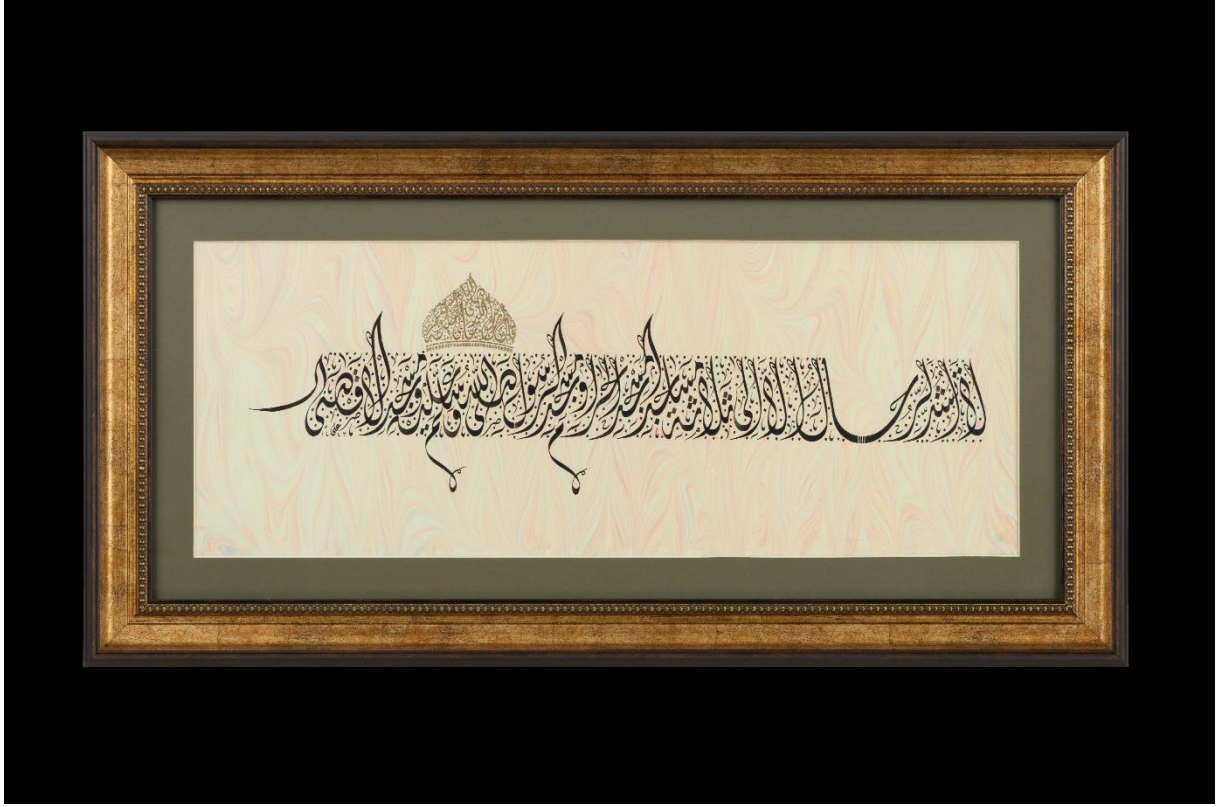 لا تشد الرحال إلا إلى ثلاثة مساجد المسجد الحرام ومسجد الرسول صلى الله عليه وسلم ومسجد الأقصى